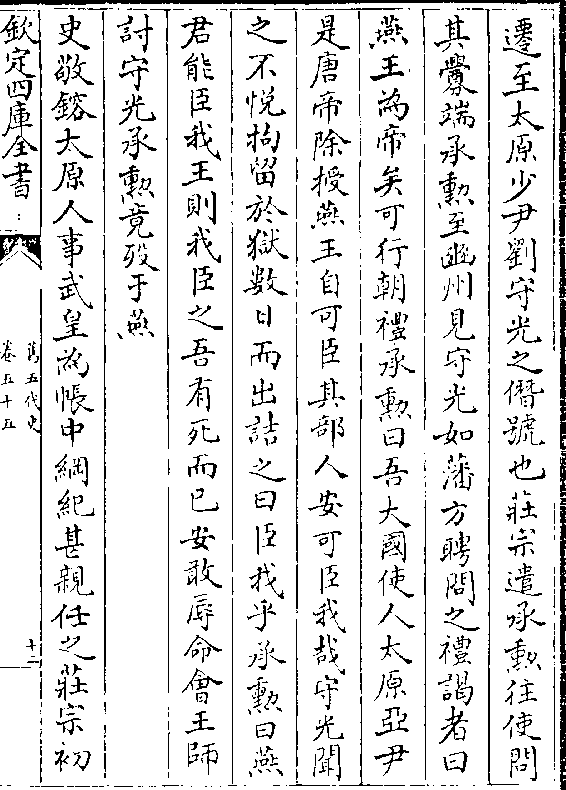 遷至太原少尹劉守光之僭號也莊宗遣承勲往使問
其釁端承勲至幽州見守光如藩方聘問之禮謁者曰
燕王為帝矣可行朝禮承勲曰吾大國使人太原亞尹
是唐帝除授燕王自可臣其部人安可臣我哉守光聞
之不悅拘留於獄數日而出詰之曰臣我乎承勲曰燕
君能臣我王則我臣之吾有死而已安敢辱命會王師
討守光承勲竟歿于燕
史敬鎔太原人事武皇為帳中綱紀甚親任之莊宗初
欽定四庫全書
舊五代史
卷五十五
十二